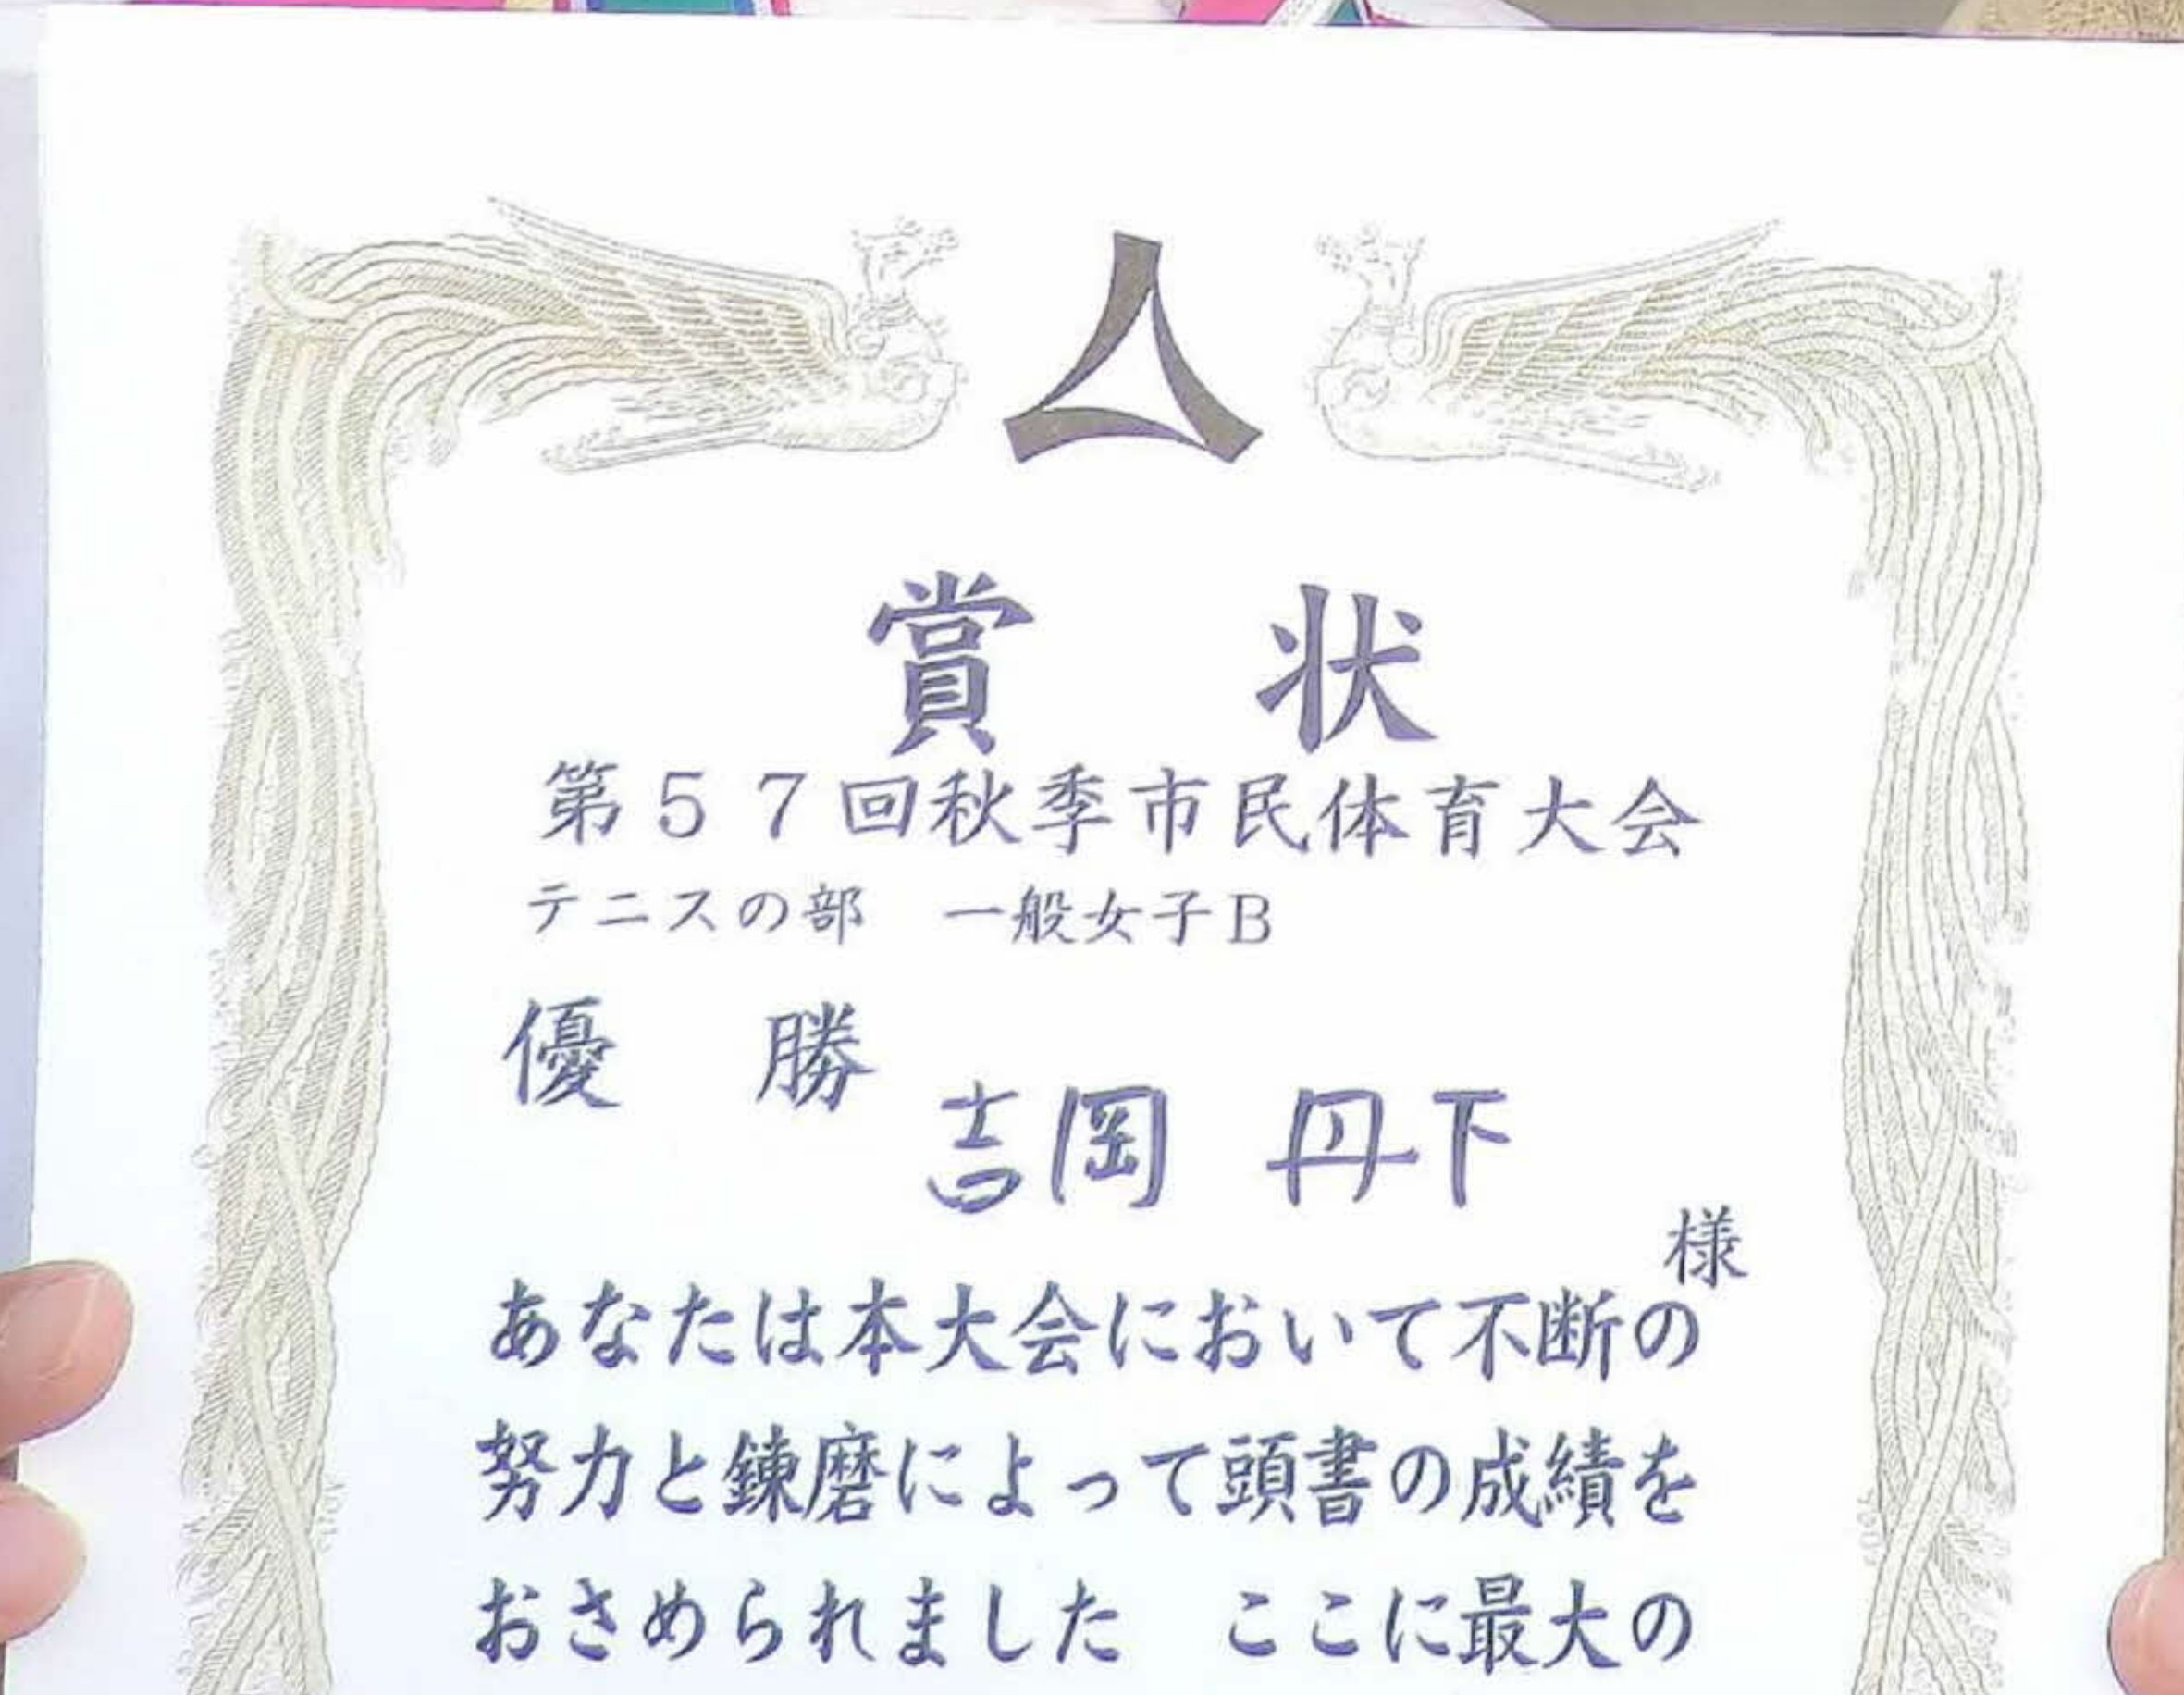 賞 状
第57回秋季市民体育大会
テニスの部 一般女子B
優 勝
吉岡 丹下
様
あなたは本大会において不断の
努力と錬磨によって頭書の成績を
おさめられました ここに最大の